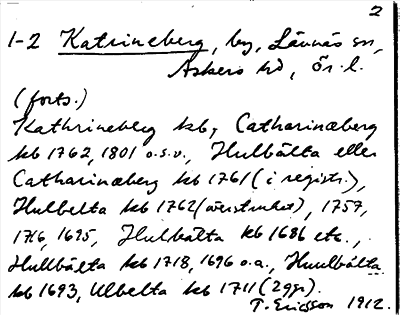 2
1-2 Katrineberg, by, Lännäs sn,
Askers hd, Ör. l.
(forts.)
Kathrineberg kb, Catharinæberg
kb 1762, 1801 o.s.v., Hulbälta eller
Catharinæberg kb 1761 (i registr.),
Hulbelta kb 1762 (överstruket), 1757,
1716, 1695, Hulbälta kb 1686 etc.,
Hullbälta kb 1718, 1696 o.a., Huulbälta
kb 1693, Ulbelta kb 1711 (2 ggr).
T. Ericsson 1912.